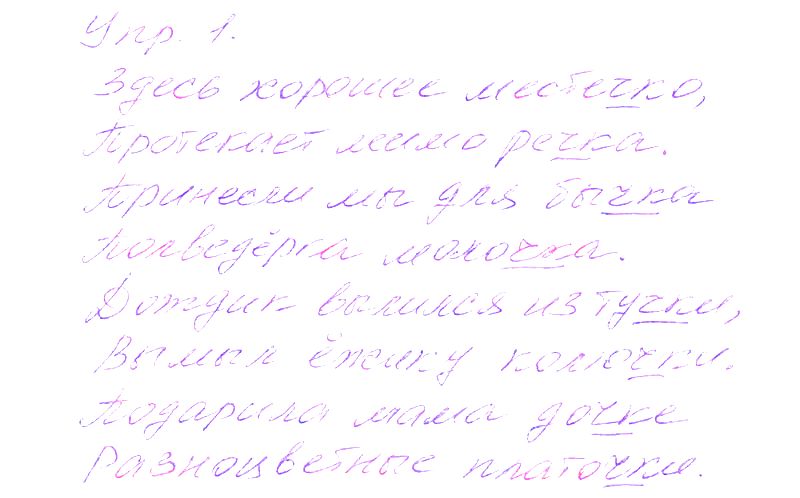 Упр. 1.
Здесь хорошее местечко,
Протекает мимо речка.
Принесли мы для бычка
Полведёрка молочка.
Дождик валился из тучки,
Вымыл ёжику колючки.
Подарила мама дочке
Разноцветные платочки.